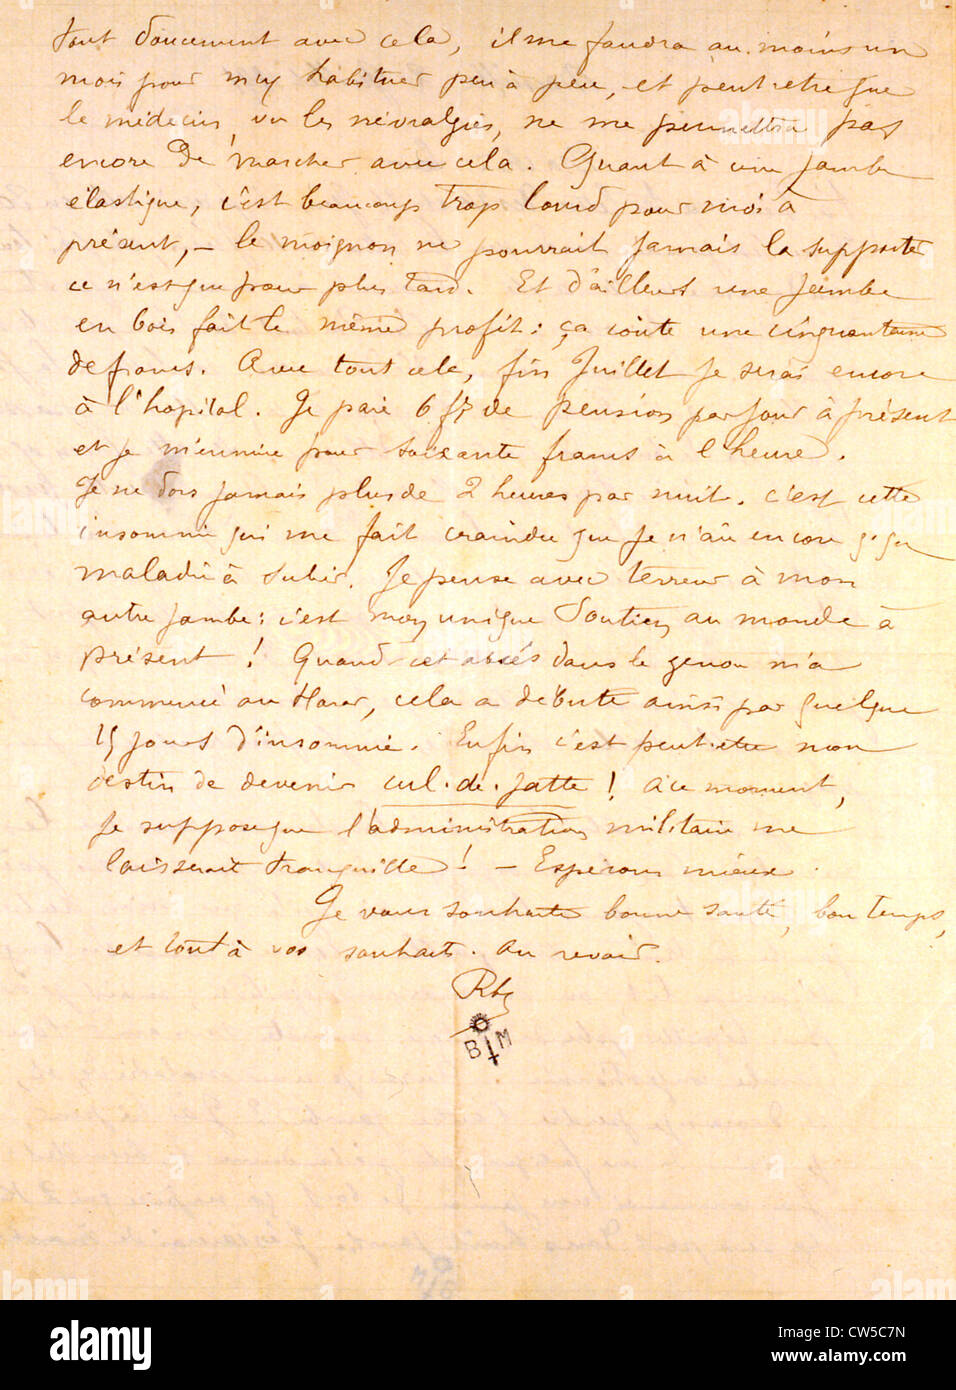 tout doucement avec cela, il me faudra au moins un
mois pour m'y habituer peu à peu, et peut-être que
le médecin, vu les névralgies, ne me permettra pas
encore de marcher avec cela. Quant à une jambe
élastique, c'est beaucoup trop lourd pour moi à
présent, – le moignon ne pourrait jamais la supporter
ce n'est que pour plus tard. Et d'ailleurs une jambe
en bois fait le même profit : ça coûte une cinquantaine
de francs. Avec tout cela, fin Juillet je serai encore
à l'hôpital. Je paie 6 f de pension par jour à présent
et je m'ennuie pour soixante francs à l'heure.
Je ne dors jamais plus de 2 heures par nuit. C'est cette
insomnie qui me fait craindre que je n'aie encore qque
maladie à subir. Je pense avec terreur à mon
autre jambe : c'est mon unique soutien au monde à
présent ! Quand cet abcès dans le genou m'a
commencé au Harar, cela a débuté ainsi par quelque
15 jours d'insomnie. Enfin c'est peut-être mon
destin de devenir cul-de-jatte ! À ce moment,
je suppose que l'administration militaire me
laisserait tranquille ! – Espérons mieux.
Je vous souhaite bonne santé, bon temps,
et tout à vos souhaits. Au revoir.
Rbd
B M
alamy
Image ID: CW5C7N
www.alamy.com